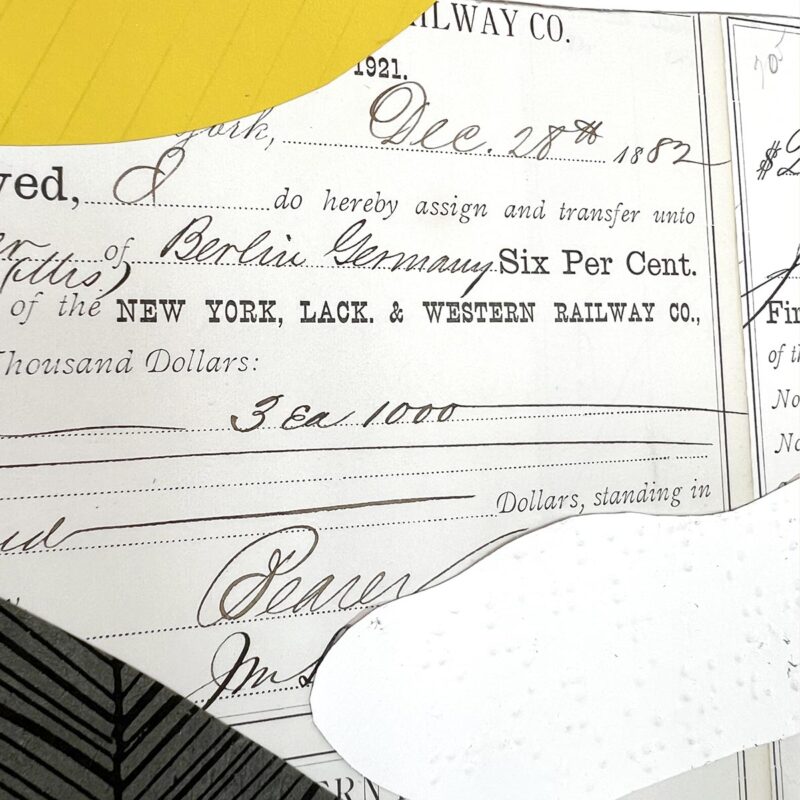 RAILWAY CO.
1921.
York, Dec. 28th 1882
ved, I do hereby assign and transfer unto
of Berlin Germany Six Per Cent.
of the NEW YORK, LACK. & WESTERN RAILWAY CO.,
Thousand Dollars:
3 Ea 1000
Dollars, standing in
Bearer
Wm S
ERN
705
$2
Fir
of th
No
No